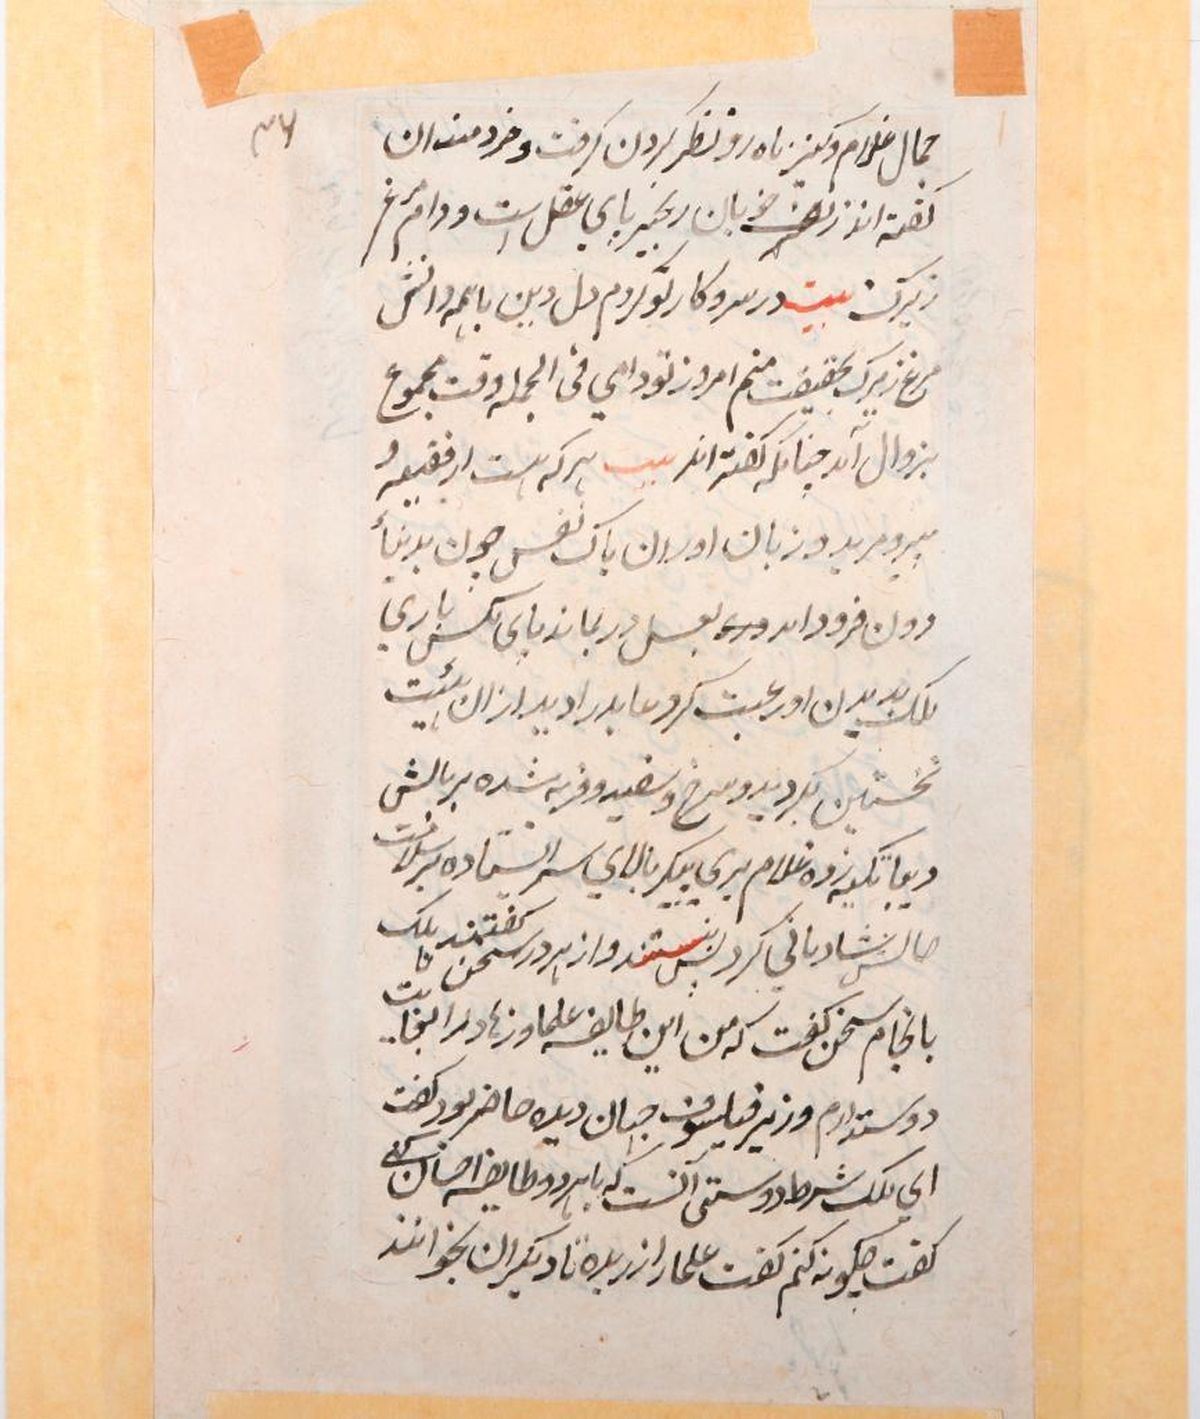 ۳۶
جمال غلام و کنیز ماه رو نظر کردن گرفت و خردمندان
گفته اند زلف خوبان زنجیر پای عقل است و دام مرغ
زیرک بیت در سر و کار تو کردم دل دین با همه دانش
مرغ زیرک بحقیقت منم امروز تو دامی فی الجمله وقت مجموع
بزوال آمد چنانکه گفته اند بیت هر که هست از فقیه و
پیر و مرید وز زبان اوران پاک نفس چون بدنیاء
دون فرود امد بعسل در بماند پای مکس باری
ملک بدیدن او رغبت کرد عابد را دید از ان هیئت
نخستین بگردیده و سرخ و سفید و فربه شده بر بالش
دیبا تکیه زده غلام پری پیکر بالای سر ایستاده بر سلامت
حالش شادمانی کرد بنشستند و از هر در سخن گفتند تا ملک
بانجام سخن گفت که من این طایفه علما و زهاد را بغایت
دوست دارم وزیر فیلسوف جهان دیده حاضر بود گفت
ای ملک شرط دوستی آنست که با هر دو طایفه احسان کنی
گفت چکونه کنم گفت علما را زر بده تا دیکران بخوانند